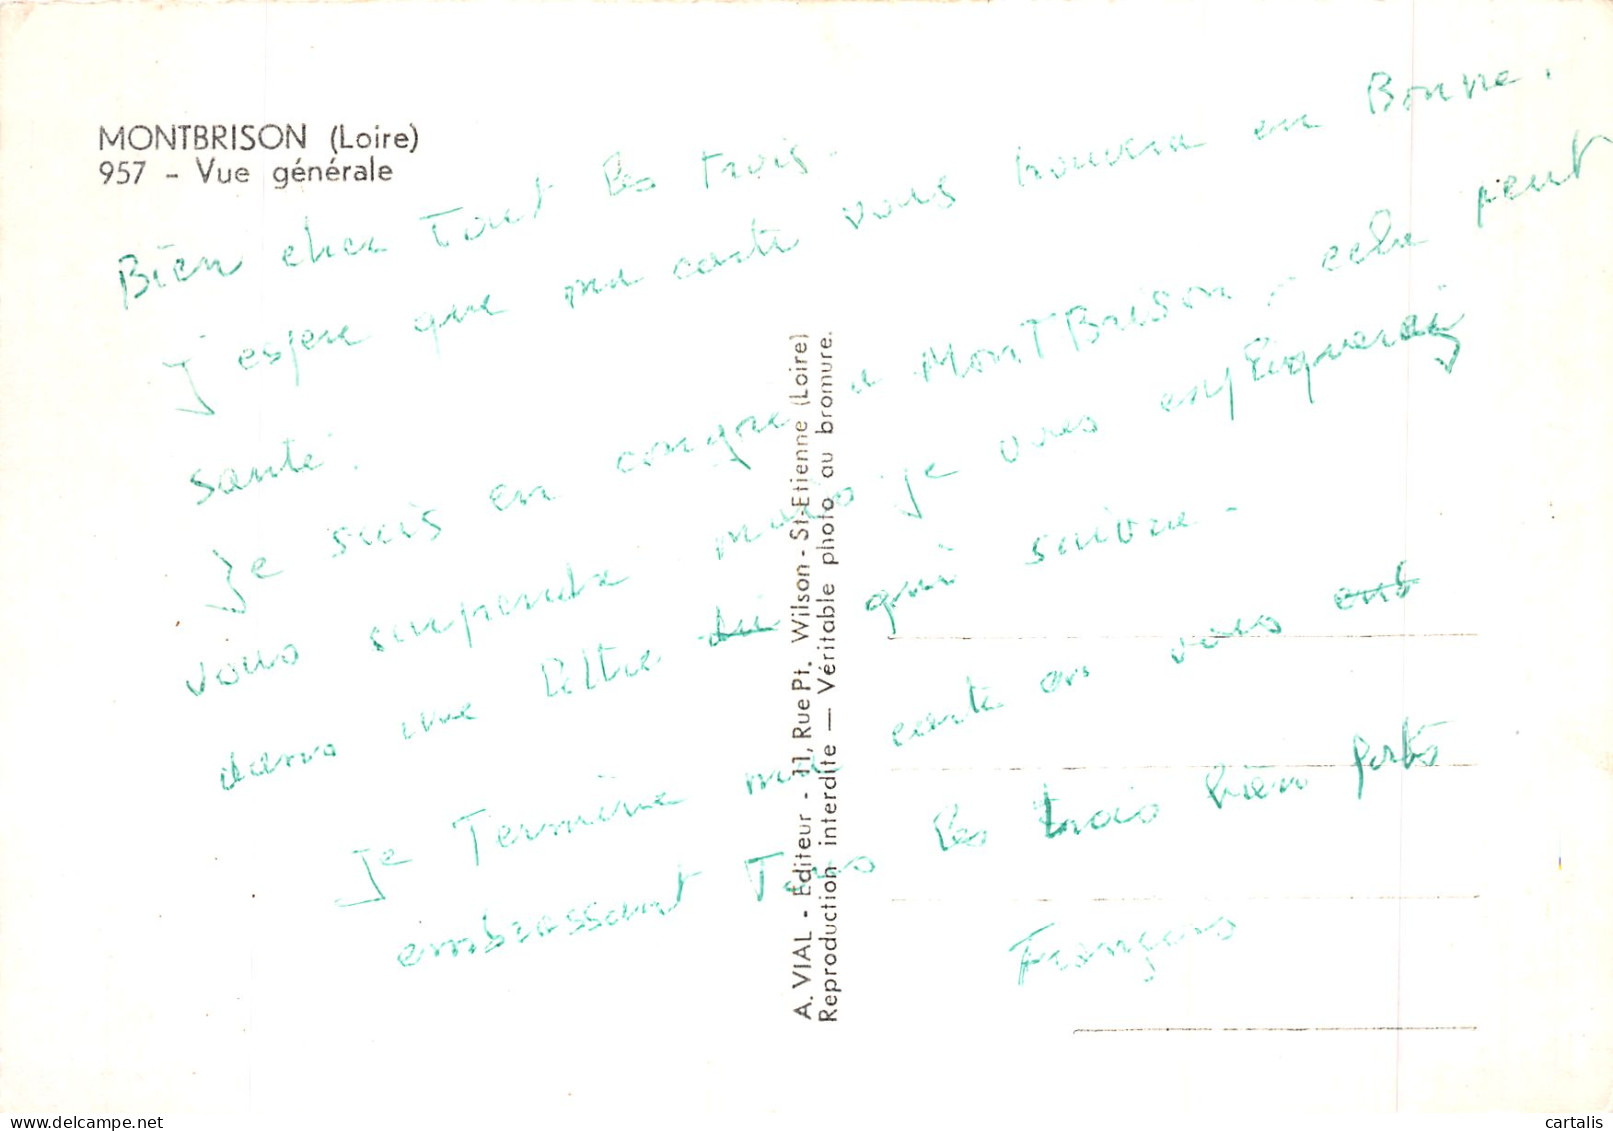 MONTBRISON (Loire)
957 - Vue générale
Bien cher Tout les trois.
J'espere que ma carte vous trouvera en Bonne.
santé.
Je suis en congre a MontBrison, cela peut
vous surprendre mais je vous enfliquerai
dans une lettre qui suivre -
Je Termine ma carte en vous
embrassant Tous les trois bien forts
François
A. VIAL - Éditeur - 11, Rue Pt. Wilson - St-Etienne (Loire)
Reproduction interdite — Véritable photo au bromure.
cartalis
www.delcampe.net